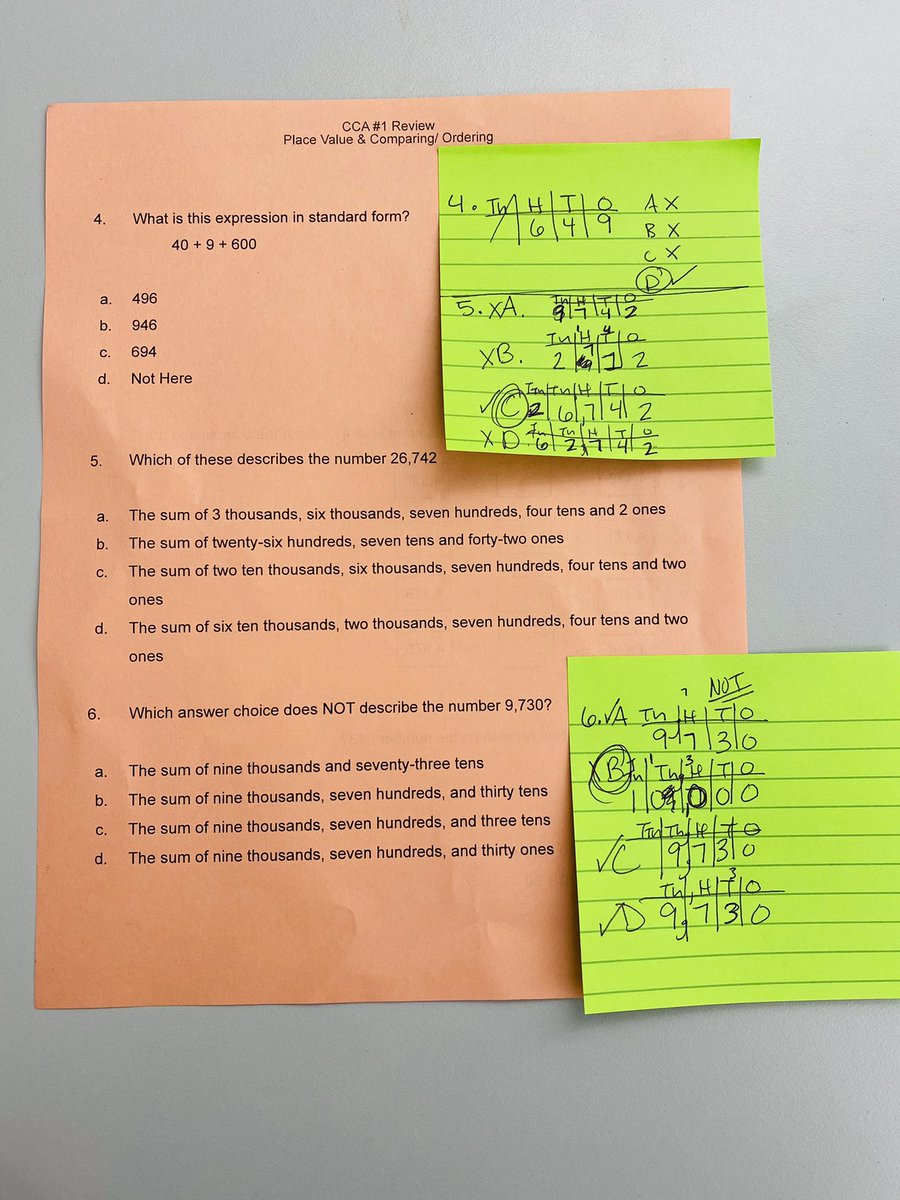 CCA #1 Review
Place Value & Comparing/ Ordering
4. What is this expression in standard form?
40 + 9 + 600
a. 496
b. 946
c. 694
d. Not Here
5. Which of these describes the number 26,742
a. The sum of 3 thousands, six thousands, seven hundreds, four tens and 2 ones
b. The sum of twenty-six hundreds, seven tens and forty-two ones
c. The sum of two ten thousands, six thousands, seven hundreds, four tens and two
ones
d. The sum of six ten thousands, two thousands, seven hundreds, four tens and two
ones
6. Which answer choice does NOT describe the number 9,730?
a. The sum of nine thousands and seventy-three tens
b. The sum of nine thousands, seven hundreds, and thirty tens
c. The sum of nine thousands, seven hundreds, and three tens
d. The sum of nine thousands, seven hundreds, and thirty ones
4. Th H T O A X
6 4 9 B X
C X
D ✓
5. X A. Th H T O
9 7 4 2
X B. Th H T O
2 7 2
✓ C TTh Th H T O
2 6,7 4 2
X D. Th H T O
6 2,7 4 2
NOT
6. ✓ A Th, H T O
9,7 3 0
X B Th, H T O
1 0 0 0 0
✓ C TTh Th, H T O
9,7 3 0
✓ D Th, H T O
9,7 3 0